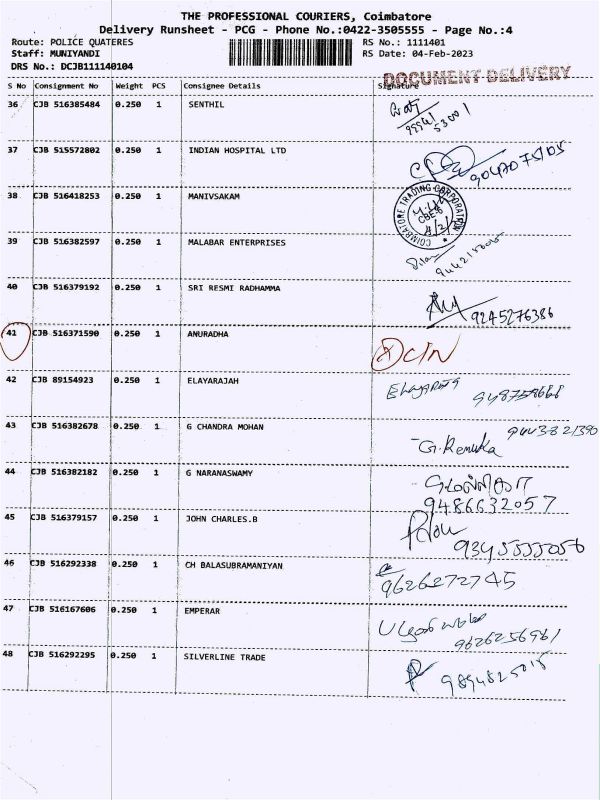 THE PROFESSIONAL COURIERS, Coimbatore
Delivery Runsheet - PCG - Phone No.:0422-3505555 - Page No.:4
Route: POLICE QUATERES
RS No.: 1111401
Staff: MUNIYANDI
RS Date: 04-Feb-2023
DRS No.: DCJB111140104
DOCUMENT DELIVERY
S No Consignment No Weight PCS Consignee Details Signature
36 CJB 516385484 0.250 1 SENTHIL
37 CJB 515572802 0.250 1 INDIAN HOSPITAL LTD
38 CJB 516418253 0.250 1 MANIVSAKAM
COIMBATORE TRADING CORPORATION
CBE-6
39 CJB 516382597 0.250 1 MALABAR ENTERPRISES
40 CJB 516379192 0.250 1 SRI RESMI RADHAMMA
9245276386
41 CJB 516371590 0.250 1 ANURADHA
42 CJB 89154923 0.250 1 ELAYARAJAH
43 CJB 516382678 0.250 1 G CHANDRA MOHAN
G. Renuka
44 CJB 516382182 0.250 1 G NARANASWAMY
9486632057
45 CJB 516379157 0.250 1 JOHN CHARLES.B
46 CJB 516292338 0.250 1 CH BALASUBRAMANIYAN
9626272745
47 CJB 516167606 0.250 1 EMPERAR
9626256961
48 CJB 516292295 0.250 1 SILVERLINE TRADE